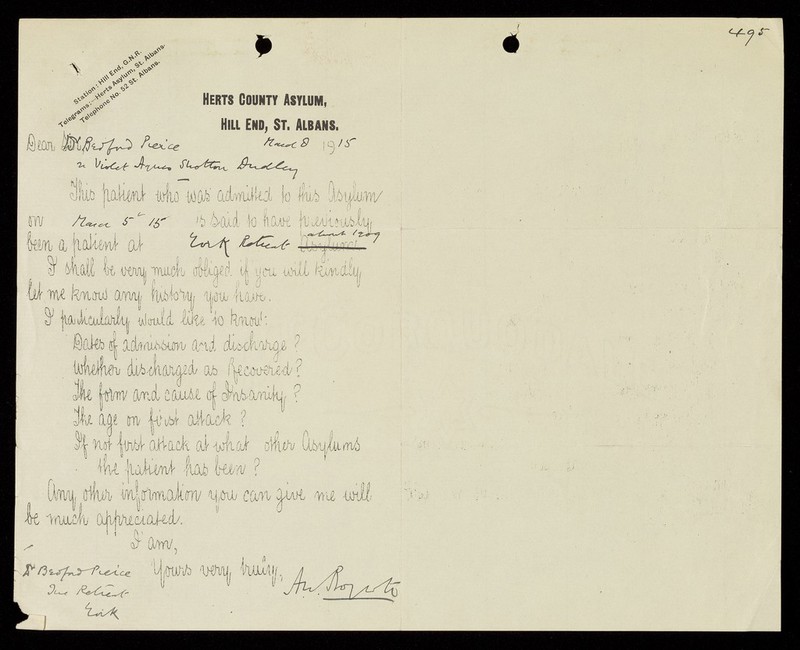 495
Station: Hill End, G.N.R.
Telegrams:—Herts Asylum, St. Albans.
Telephone No. 52 St. Albans.
HERTS COUNTY ASYLUM,
HILL END, ST. ALBANS.
Dear Dr Bedford Pierce March 8 1915
re Violet Agnes Shotton Dudley
This patient who was admitted to this Asylum
on March 5 15 is said to have previously
been a patient at York Retreat Asylum about 1909
I shall be very much obliged if you will kindly
let me know any history you have.
I particularly would like to know:
Dates of admission and discharge?
Whether discharged as Recovered?
The form and cause of Insanity?
The age on first attack?
If not first attack at what other Asylums
the patient has been?
Any other information you can give me will
be much appreciated.
I am,
Yours very truly,
Dr Bedford Pierce
The Retreat
York